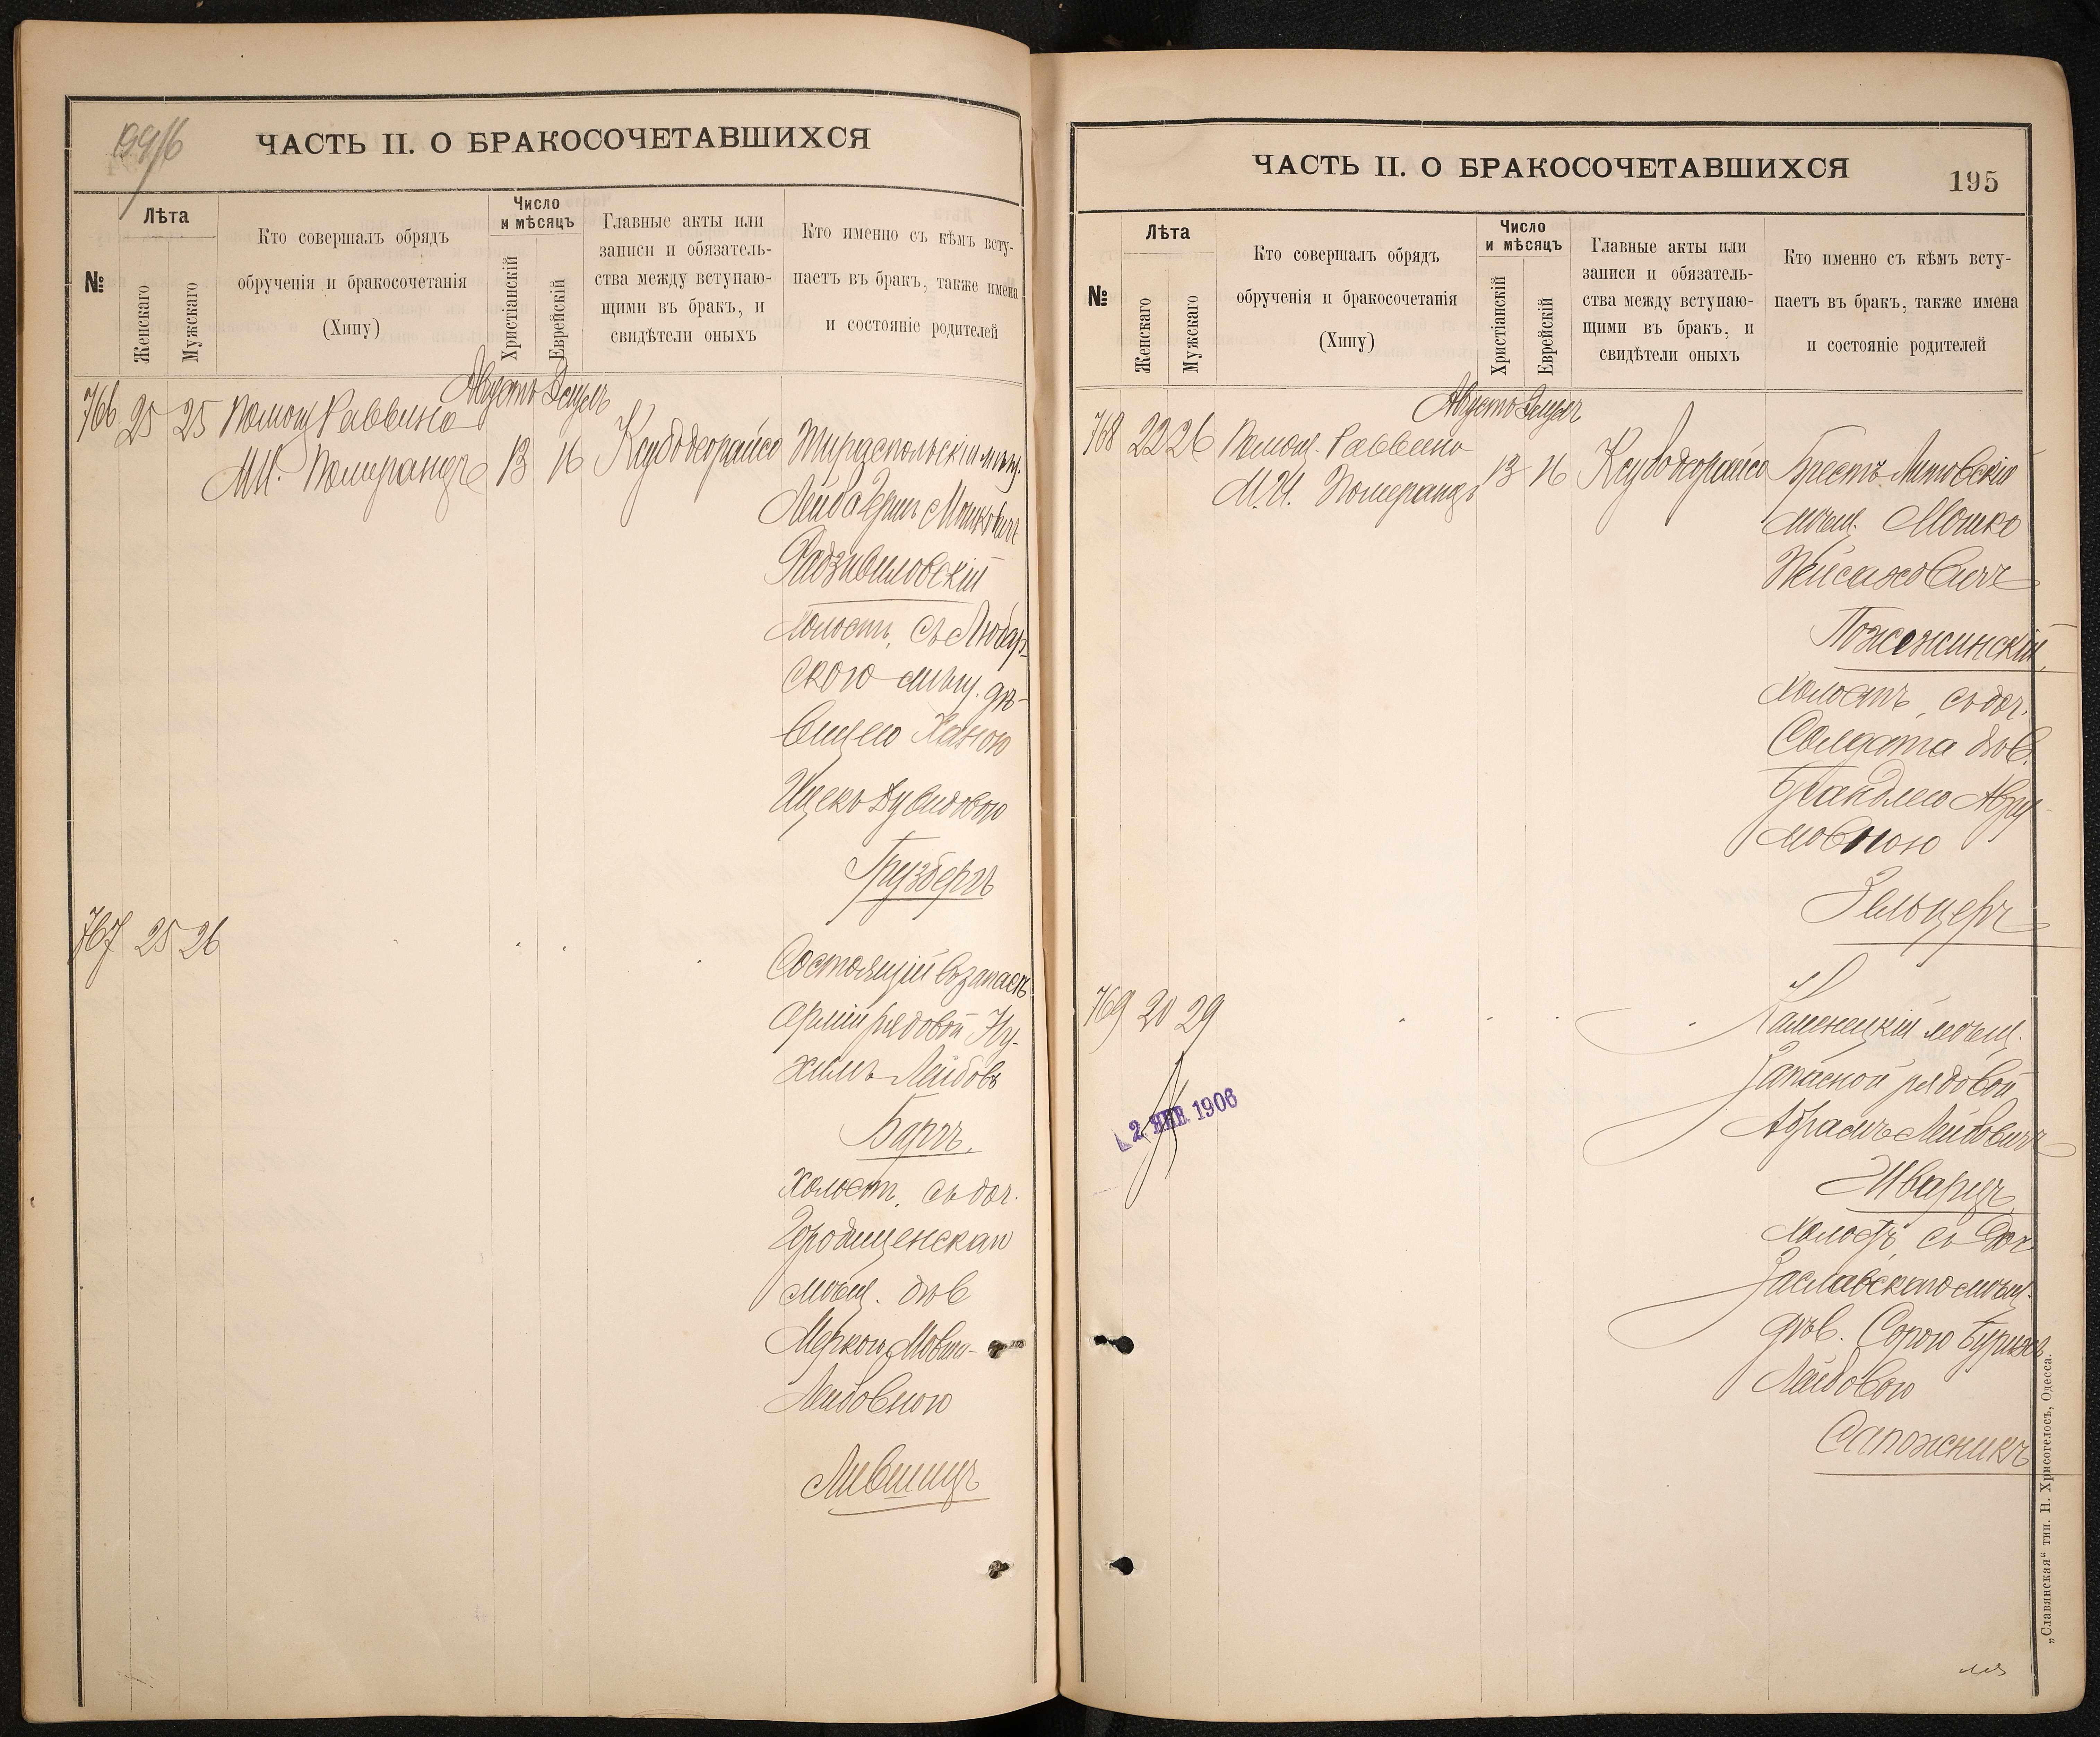 ЧАСТЬ II. О БРАКОСОЧЕТАВШИХСЯ
№
Лѣта
Женскаго
Мужскаго
Кто совершалъ обрядъ
обрученія и бракосочетанія
(Хипу)
Число
и мѣсяцъ
Христіанскій
Еврейскій
Главные акты или
записи и обязатель-
ства между вступаю-
щими въ бракъ, и
свидѣтели оныхъ
Кто именно съ кѣмъ всту-
паетъ въ бракъ, также имена
и состояніе родителей
766 25 25 Помощ Раввина
М.И. Померанцъ
Августъ Элулъ
13 16
Ксубодеорайсо
Тираспольскій мѣщ.
Лейба Герш Мошковичъ
Радзивиловскій
холостъ, съ Любар-
скою мѣщ. дѣ-
вицею Ханою
Ицеко Дувидовою
Грузбергъ
767 25 26
Состоящій въ запасѣ
арміи рядовой Ну-
химъ Лейбовъ
Баргъ,
холост. съ доч.
Городищенскаго
мѣщ. дѣв
Меркою Мовша-
Лейбовною
Лившицъ
ЧАСТЬ II. О БРАКОСОЧЕТАВШИХСЯ
195
№
Лѣта
Женскаго
Мужскаго
Кто совершалъ обрядъ
обрученія и бракосочетанія
(Хипу)
Число
и мѣсяцъ
Христіанскій
Еврейскій
Главные акты или
записи и обязатель-
ства между вступаю-
щими въ бракъ, и
свидѣтели оныхъ
Кто именно съ кѣмъ всту-
паетъ въ бракъ, также имена
и состояніе родителей
768 22 26 Помощ. Раввина
М.И. Померанцъ
Августъ Элулъ
13 16
Ксубодеорайсо
Брестъ-Литовскій
мѣщ. Мошко
Пейсаховичъ
Пожежинскій,
холостъ, съ доч.
Солдата дѣв.
Брандлею Абра-
мовною
Зельцеръ
769 20 29
Каменецкій мѣщ.
Запасной рядовой
Абрамъ Лейбовичъ
Шварцъ,
холостъ, съ доч
Заславскаго мѣщ.
дѣв. Сорою Бурихъ
Лейбовою
Сапожникъ
2 ЯНВ 1906
„Славянская“ тип. Н. Хрисогелосъ, Одесса.